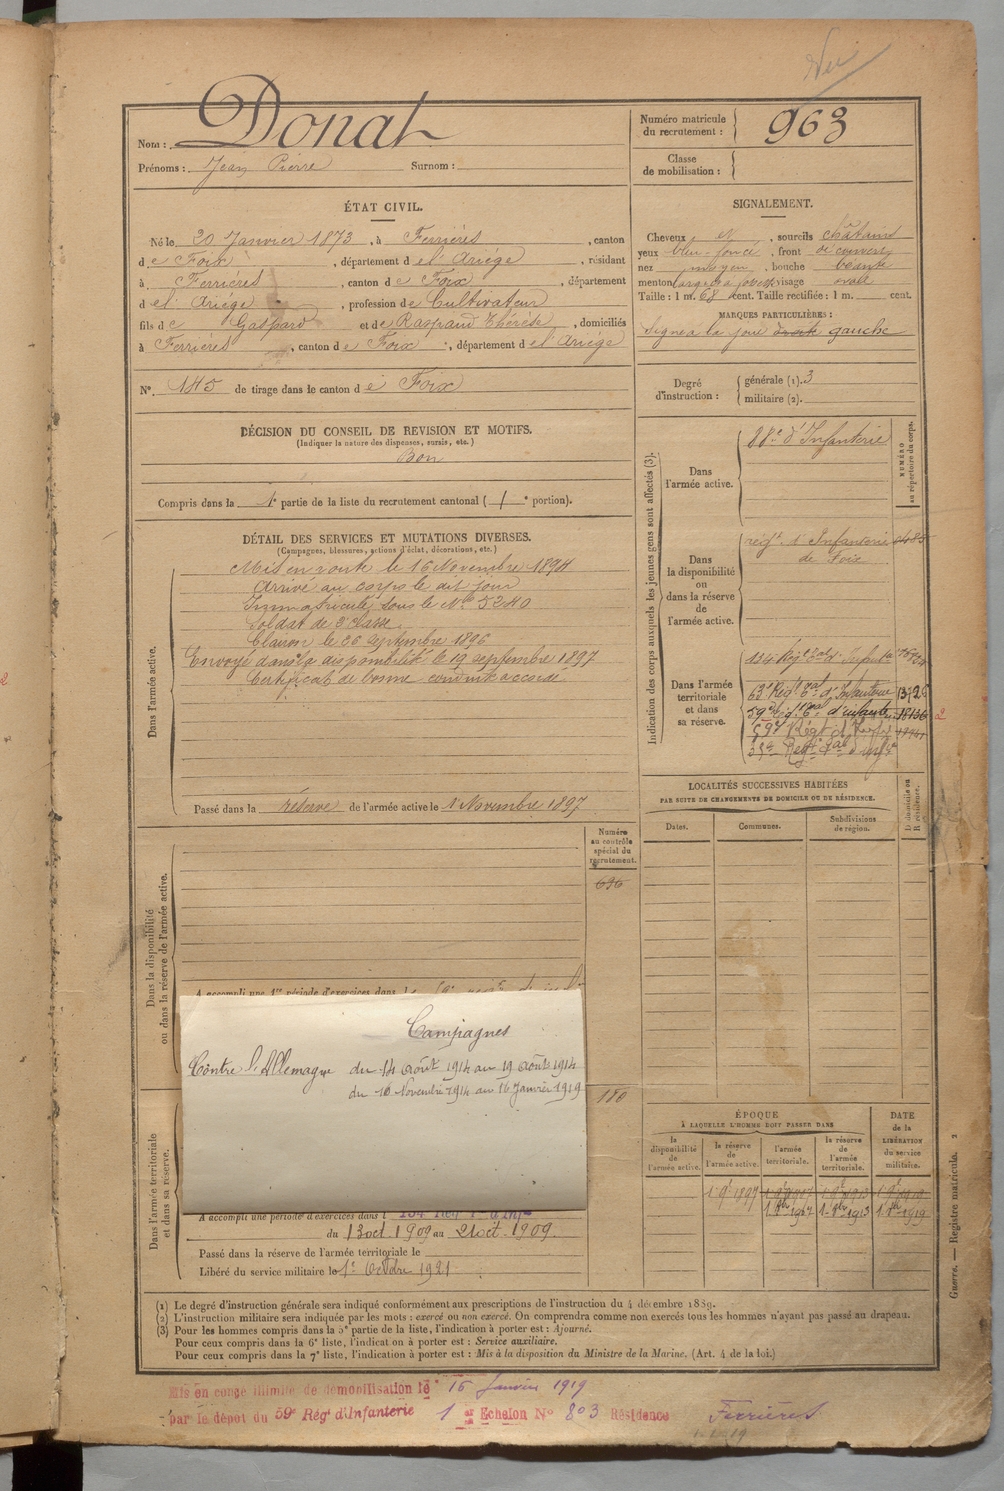 Vu
Nom : Donat
Prénoms : Jean Pierre Surnom :
Numéro matricule du recrutement : 963
Classe de mobilisation :
ÉTAT CIVIL.
Né le 20 Janvier 1873, à Ferrières, canton
de Foix, département de l'Ariége, résidant
à Ferrières, canton de Foix, département
de l'Ariége, profession de Cultivateur
fils de Gaspard et de Raspaud Thérèse, domiciliés
à Ferrières, canton de Foix, département de l'Ariége
N° 145 de tirage dans le canton de Foix
SIGNALEMENT.
Cheveux et, sourcils châtains
yeux bleu-foncé, front découvert
nez moyen, bouche béante
menton large, visage ovale
Taille : 1 m. 68 cent. Taille rectifiée : 1 m. cent.
MARQUES PARTICULIÈRES :
Signe à la joue droite gauche
Degré d'instruction : générale (1). 3
militaire (2).
DÉCISION DU CONSEIL DE REVISION ET MOTIFS.
(Indiquer la nature des dispenses, sursis, etc.)
Bon
Compris dans la 1e partie de la liste du recrutement cantonal ( 1 e portion).
DÉTAIL DES SERVICES ET MUTATIONS DIVERSES.
(Campagnes, blessures, actions d'éclat, décorations, etc.)
Dans l'armée active.
Mis en route le 16 Novembre 1894
Arrivé au corps le dit jour
Immatriculé sous le No 5240
Soldat de 2e classe.
Clairon le 26 septembre 1896
Envoyé dans la disponibilité le 19 septembre 1897
Certificat de bonne conduite accordé
Passé dans la réserve de l'armée active le 1 Novembre 1897
Indication des corps auxquels les jeunes gens sont affectés (3).
NUMÉRO au répertoire du corps.
Dans l'armée active.
88e d'Infanterie
Dans la disponibilité ou dans la réserve de l'armée active.
régt d'Infanterie
de Foix
Dans l'armée territoriale et dans sa réserve.
134 Régt d'Infant
63e Régt d'Infanterie
59e Régt d'infanterie 18136 2
59e Régt d'Inf
LOCALITÉS SUCCESSIVES HABITÉES
PAR SUITE DE CHANGEMENTS DE DOMICILE OU DE RÉSIDENCE.
Dates. Communes. Subdivisions de région. D domicile ou R résidence.
Numéro au contrôle spécial du recrutement.
696
Dans la disponibilité ou dans la réserve de l'armée active.
A accompli une 1re période d'exercices dans
Campagnes
Contre l'Allemagne du 14 août 1914 au 19 août 1914
du 10 Novembre 1914 au 16 Janvier 1919
180
Dans l'armée territoriale et dans sa réserve.
A accompli une période d'exercices dans l
du 13 oct. 1909 au 21 oct. 1909.
Passé dans la réserve de l'armée territoriale le
Libéré du service militaire le 1er Octobre 1921
ÉPOQUE
À LAQUELLE L'HOMME DOIT PASSER DANS
la disponibilité de l'armée active. la réserve de l'armée active. l'armée territoriale. la réserve de l'armée territoriale.
DATE de la LIBÉRATION du service militaire.
(1) Le degré d'instruction générale sera indiqué conformément aux prescriptions de l'instruction du 4 décembre 1889.
(2) L'instruction militaire sera indiquée par les mots : exercé ou non exercé. On comprendra comme non exercés tous les hommes n'ayant pas passé au drapeau.
(3) Pour les hommes compris dans la 5e partie de la liste, l'indication à porter est : Ajourné.
Pour ceux compris dans la 6e liste, l'indication à porter est : Service auxiliaire.
Pour ceux compris dans la 7e liste, l'indication à porter est : Mis à la disposition du Ministre de la Marine. (Art. 4 de la loi.)
Guerre. — Registre matricule. 2
Mis en congé illimité de démobilisation le 16 Janvier 1919
par le dépôt du 59e Rég d'Infanterie 1er Echelon N° 803 Résidence Ferrières